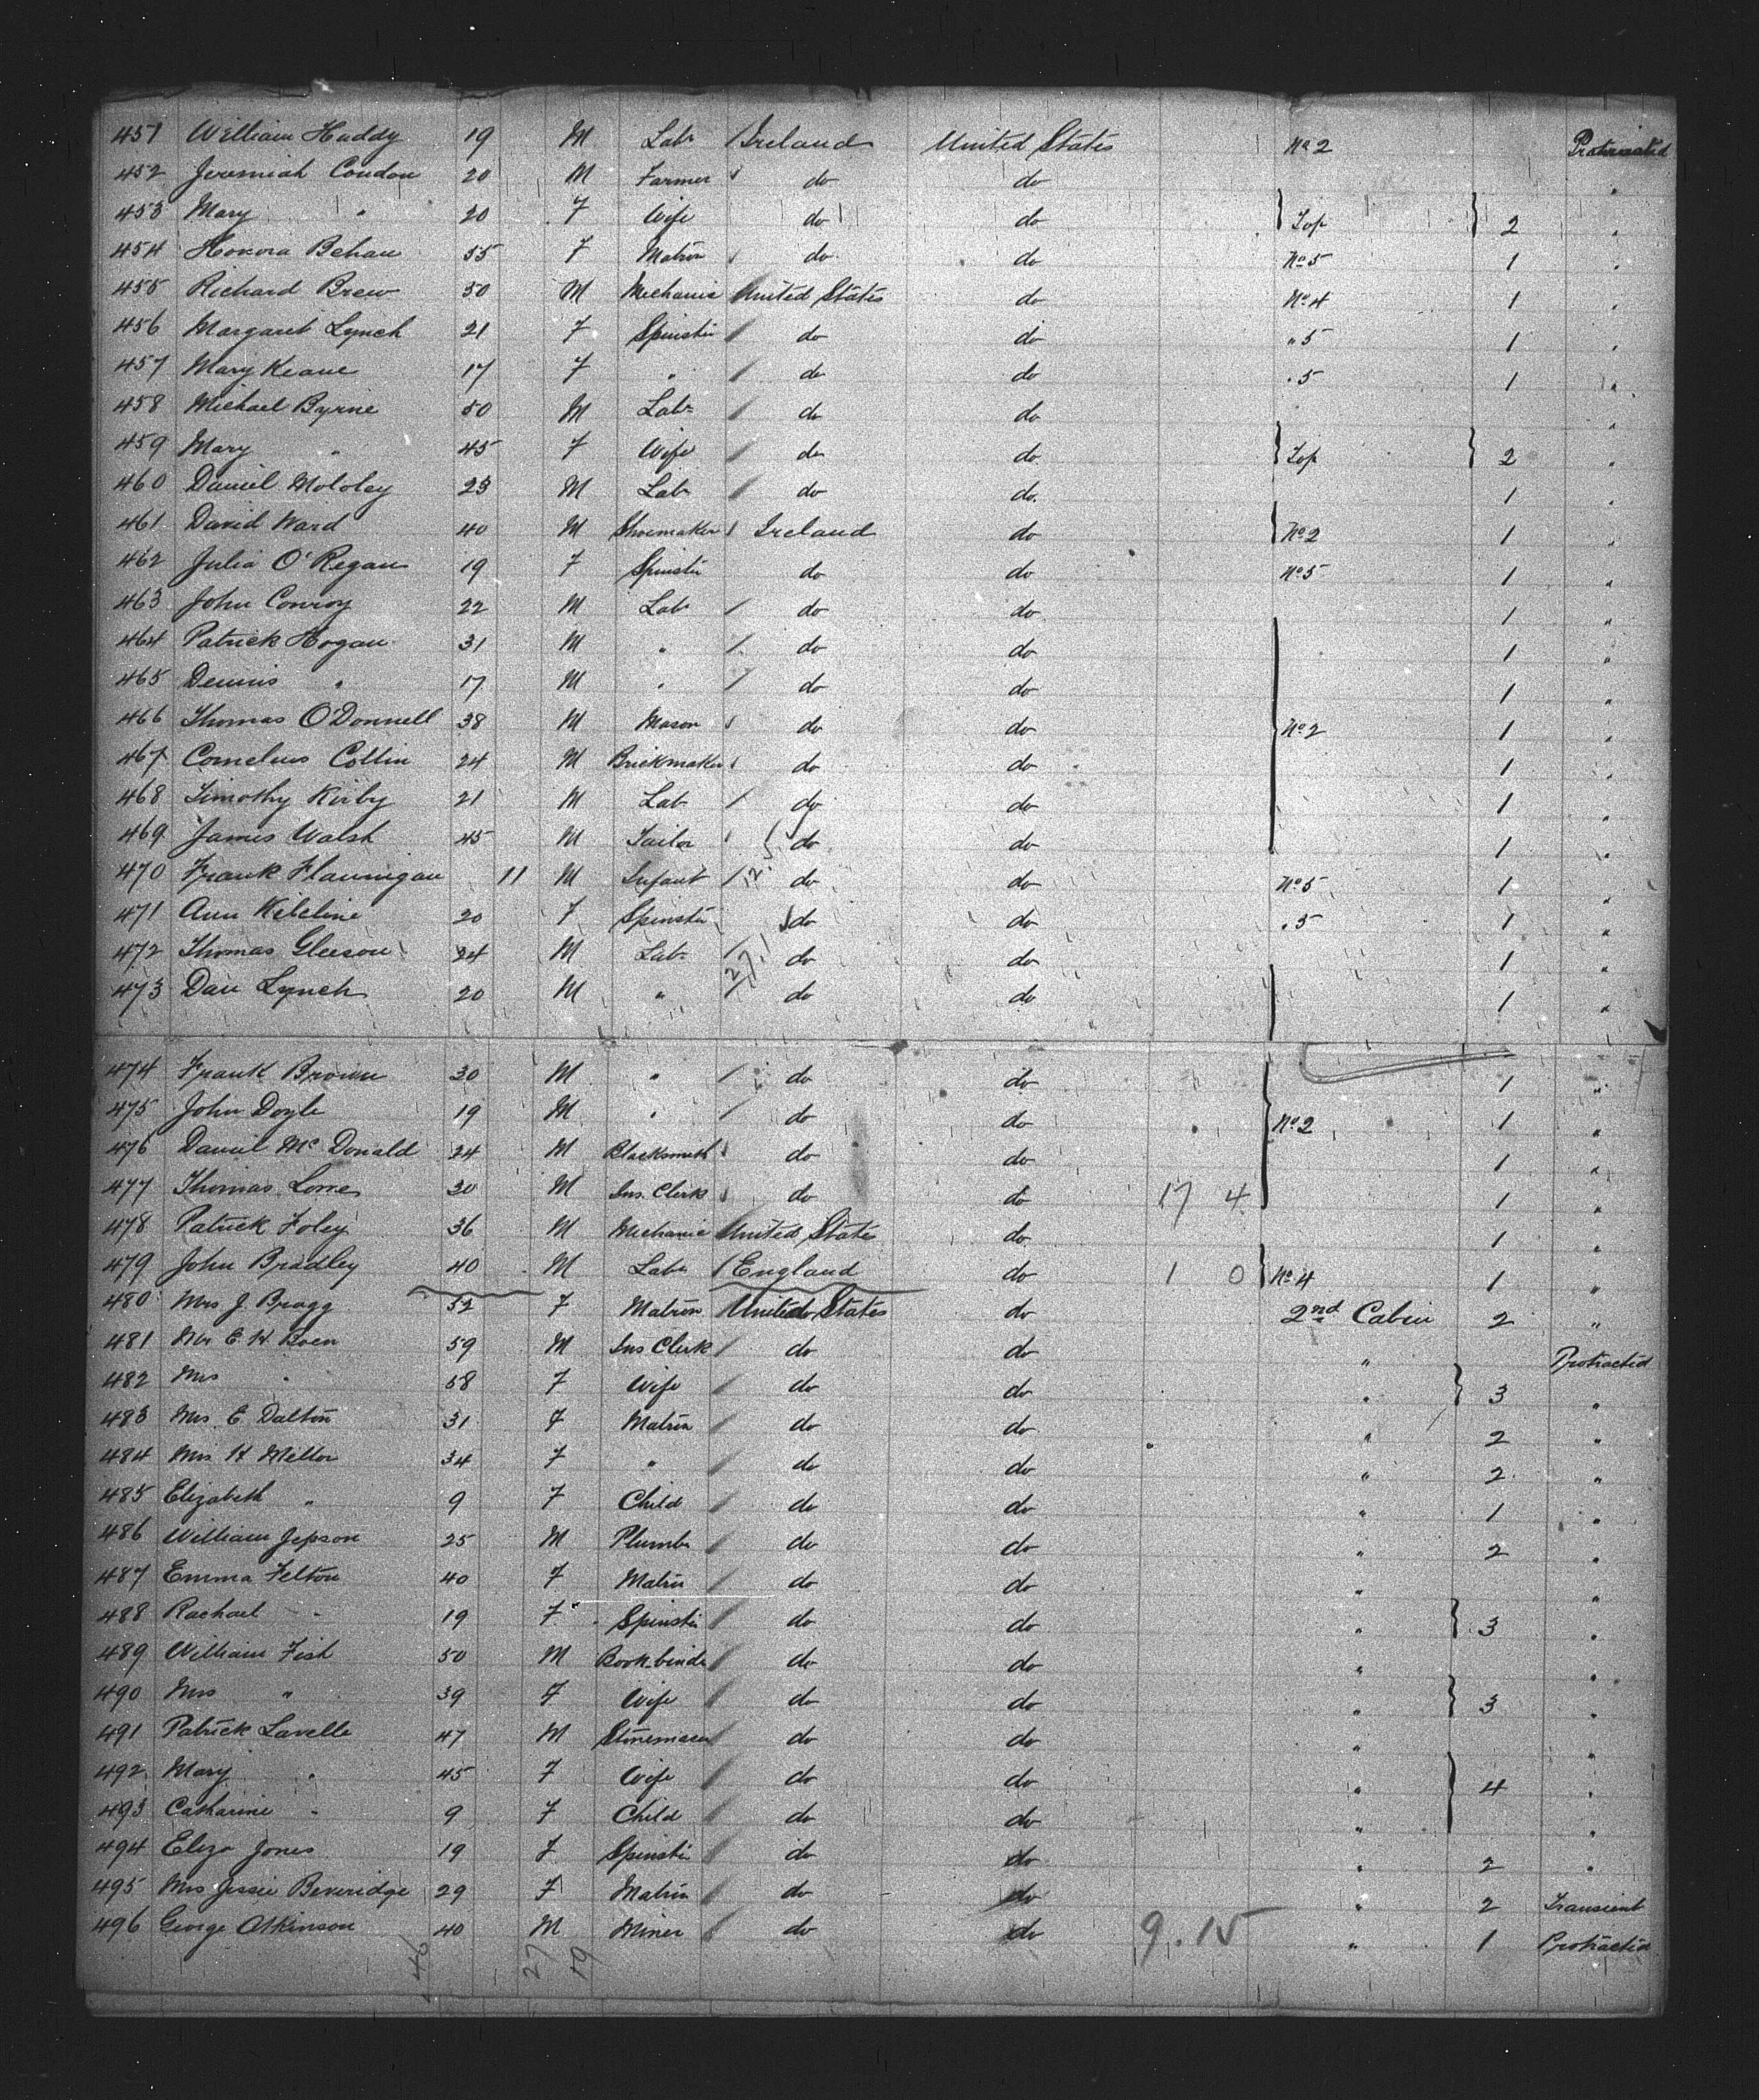 451 William Haddy 19 M Labr Ireland United States No 2 Protracted
452 Jeremiah Condon 20 M Farmer do do "
453 Mary " 20 F Wife do do Top 2 "
454 Honora Behan 55 F Matron do do No 5 1 "
455 Richard Brew 50 M Mechanic United States do No 4 1 "
456 Margaret Lynch 21 F Spinster do do " 5 1 "
457 Mary Keane 17 F " do do " 5 1 "
458 Michael Byrne 50 M Labr do do "
459 Mary " 45 F Wife do do Top 2 "
460 Daniel Mololey 23 M Labr do do 1 "
461 David Ward 40 M Shoemaker Ireland do No 2 1 "
462 Julia O'Regan 19 F Spinster do do No 5 1 "
463 John Conroy 22 M Labr do do 1 "
464 Patrick Hogan 31 M " do do 1 "
465 Dennis " 17 M " do do 1 "
466 Thomas O'Donnell 38 M Mason do do No 2 1 "
467 Cornelius Collin 24 M Brickmaker do do 1 "
468 Timothy Kirby 21 M Lab do do 1 "
469 James Walsh 45 M Tailor do do 1 "
470 Frank Flannigan 11 M Infant do do No 5 1 "
471 Ann 20 F Spinster do do " 5 1 "
472 Thomas Gleeson 24 M Labr do do 1 "
473 Dan Lynch 20 M " do do 1 "
474 Frank Brown 30 M " do do 1 "
475 John Doyle 19 M " do do No 2 1 "
476 Daniel McDonald 24 M Blacksmith do do 1 "
477 Thomas 30 M Ins. Clerk do do 17 4 1 "
478 Patrick Foley 36 M Mechanic United States do 1 "
479 John Bradley 40 M Labr England do 1 0 No 4 1 "
480 Mrs J. Bragg 52 F Matron United States do 2nd Cabin 2 "
481 Mr E. H. Boen 59 M Ins Clerk do do " Protracted
482 Mrs " 58 F Wife do do " 3 "
483 Mrs. E. Dalton 31 F Matron do do " 2 "
484 Mrs H Mellor 34 F " do do " 2 "
485 Elizabeth " 9 F Child do do " 1 "
486 William Jepson 25 M Plumbr do do " 2 "
487 Emma Felton 40 F Matron do do " "
488 Rachael " 19 F Spinster do do " 3 "
489 William Fish 50 M Bookbinder do do " "
490 Mrs " 39 F Wife do do " 3 "
491 Patrick Lavelle 47 M Stonemason do do " "
492 Mary " 45 F Wife do do " 4 "
493 Catharine " 9 F Child do do " "
494 Eliza Jones 19 F Spinster do do " 2 "
495 Mrs Jessie Beveridge 29 F Matron do do " 2 Transient
496 George Atkinson 40 M Miner do do 9.15 " 1 Protracted
46 27 19